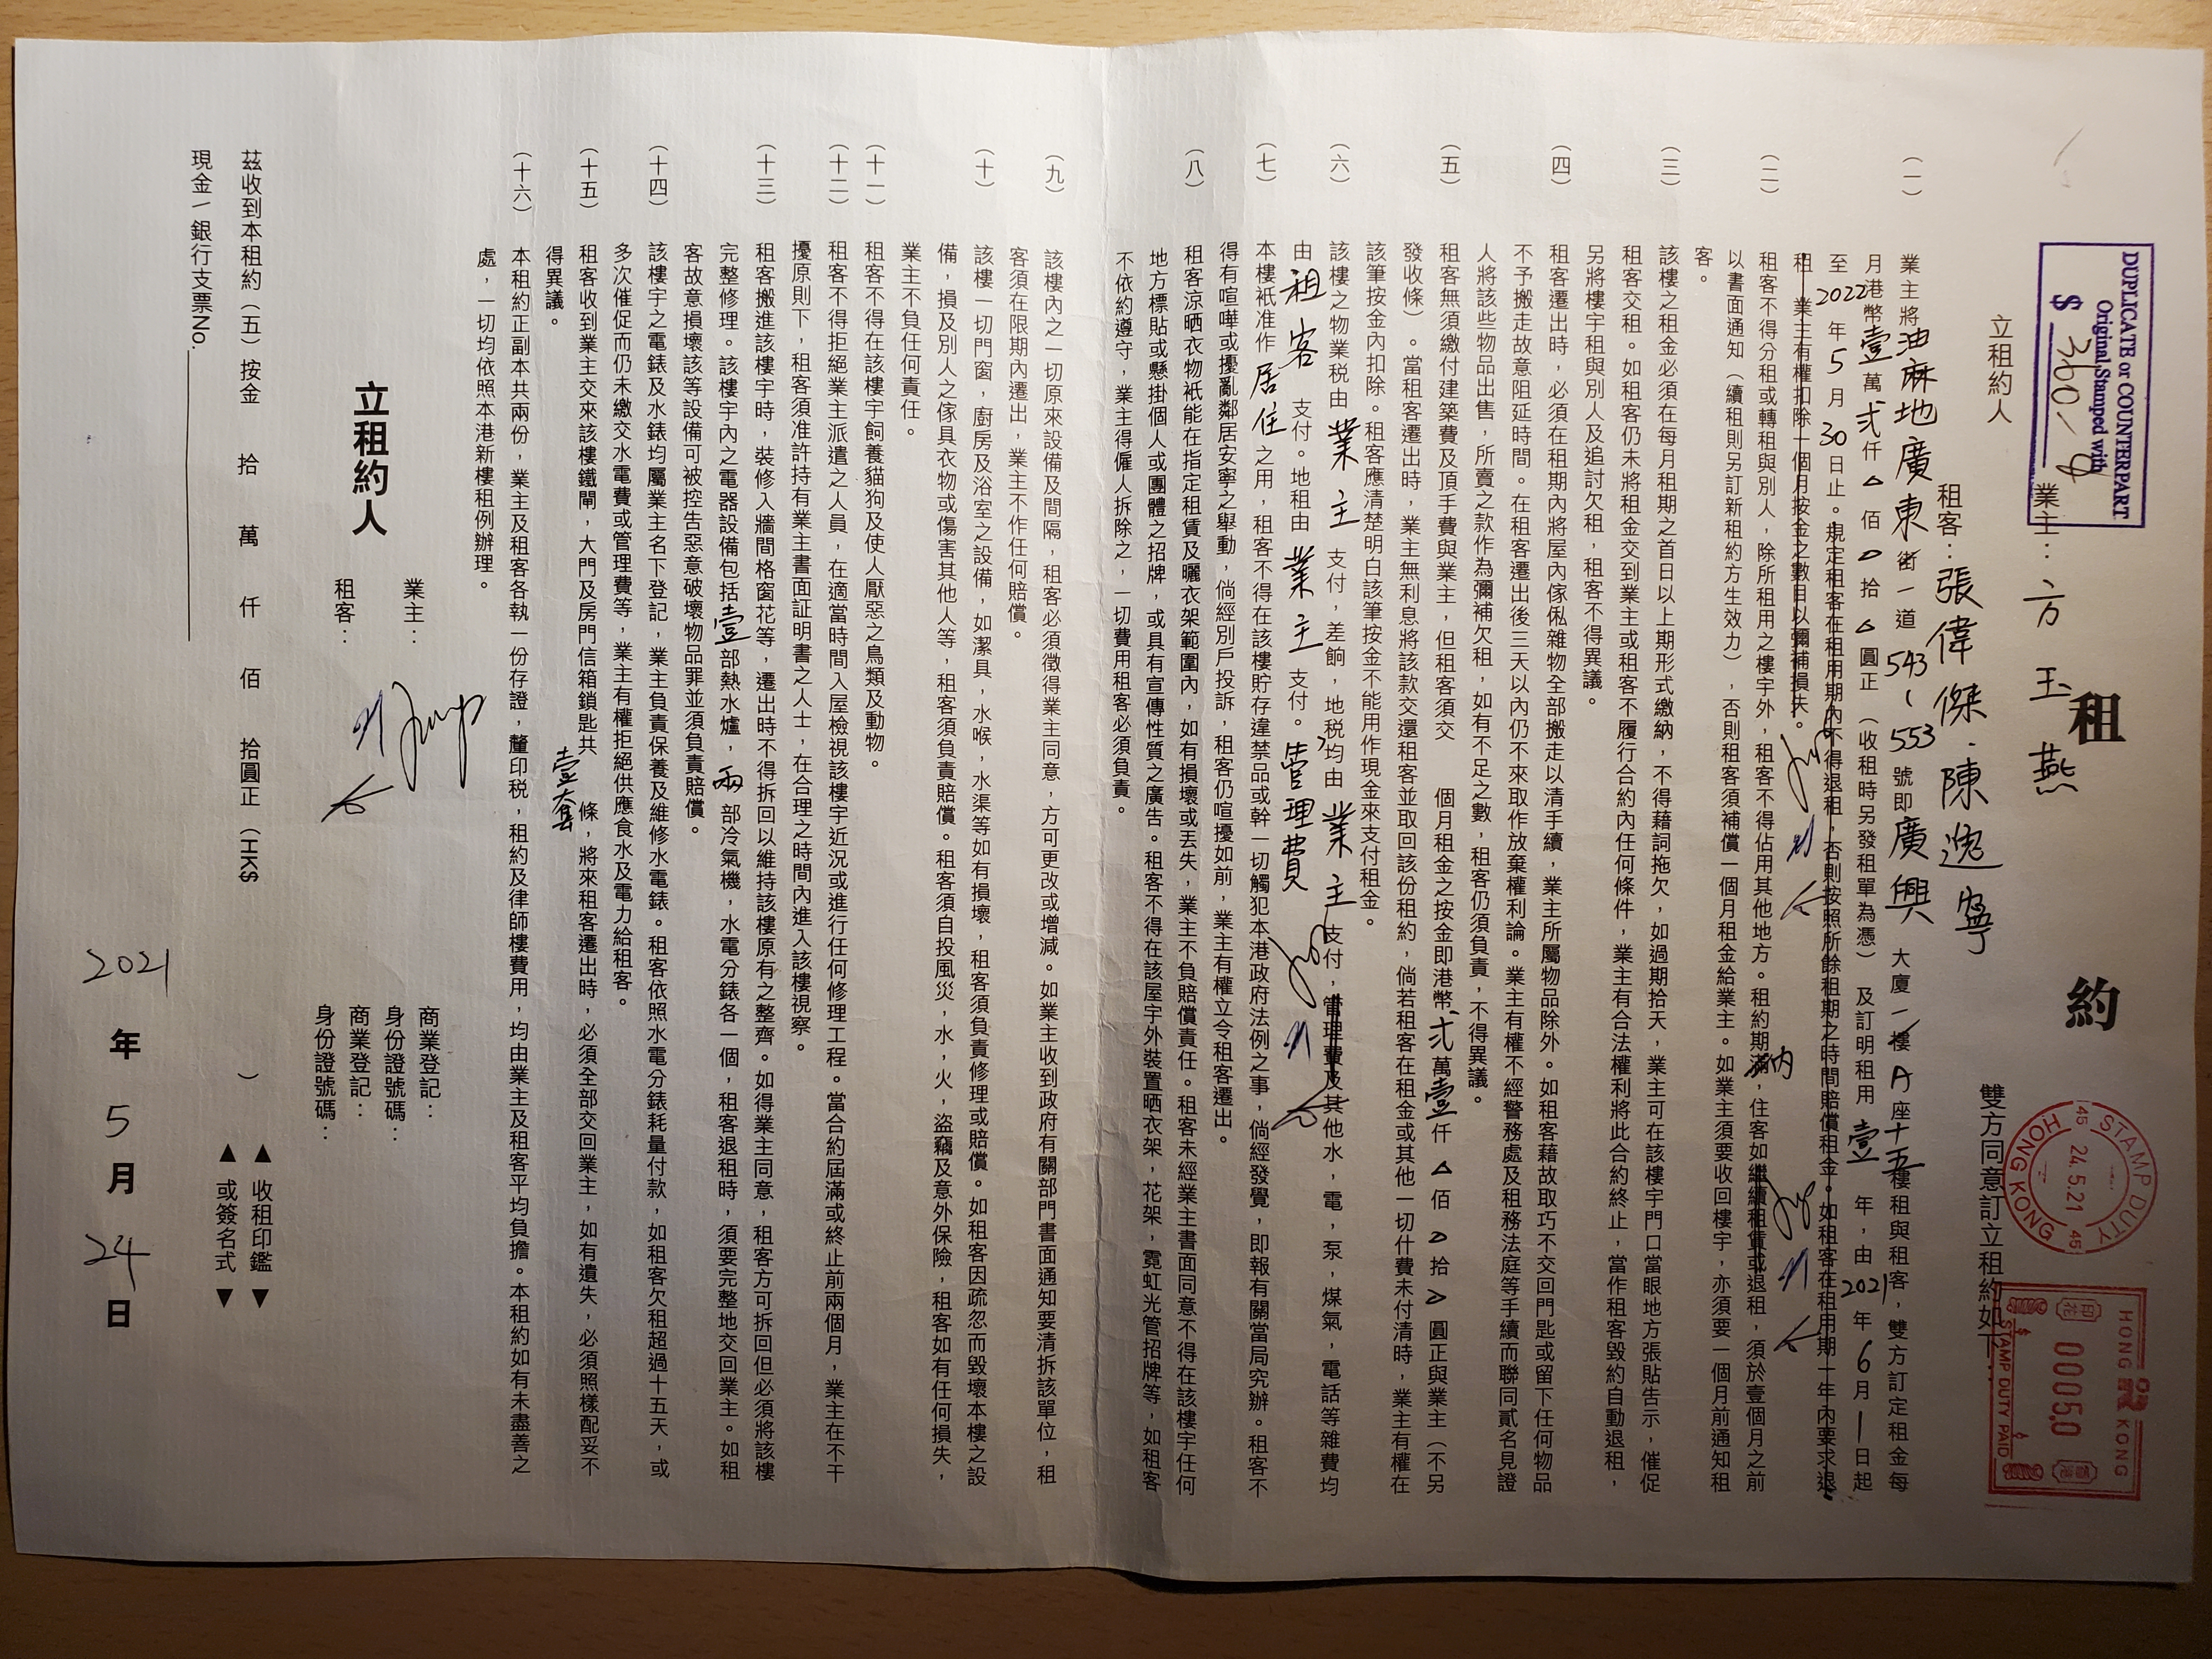 租 約
DUPLICATE or COUNTERPART
Original Stamped with
$ 360-
STAMP DUTY
45 24.5.21 45
HONG KONG
HONG KONG
印花 00050 香港
STAMP DUTY PAID
立租約人 業主：方玉燕
租客：張偉傑．陳逸寧 雙方同意訂立租約如下：
（一） 業主將油麻地廣東街一道543-553號即廣興大廈一樓A座十五樓租與租客，雙方訂定租金每
月港幣壹萬弍仟△佰△拾△圓正（收租時另發租單為憑）及訂明租用壹年，由2021年6月1日起
至2022年5月30日止。規定租客在租用期內不得退租，否則按照所餘租期之時間賠償租金。如租客在租用期一年內要求退
租，業主有權扣除一個月按金之數目以彌補損失。
（二） 租客不得分租或轉租與別人，除所租用之樓宇外，租客不得佔用其他地方。租約期滿內，住客如繼續租賃或退租，須於壹個月之前
以書面通知（續租則另訂新租約方生效力），否則租客須補償一個月租金給業主。如業主須要收回樓宇，亦須要一個月前通知租
客。
（三） 該樓之租金必須在每月租期之首日以上期形式繳納，不得藉詞拖欠，如過期拾天，業主可在該樓宇門口當眼地方張貼告示，催促
租客交租。如租客仍未將租金交到業主或租客不履行合約內任何條件，業主有合法權利將此合約終止，當作租客毀約自動退租，
另將樓宇租與別人及追討欠租，租客不得異議。
（四） 租客遷出時，必須在租期內將屋內傢俬雜物全部搬走以清手續，業主所屬物品除外。如租客藉故取巧不交回門匙或留下任何物品
不予搬走故意阻延時間。在租客遷出後三天以內仍不來取作放棄權利論。業主有權不經警務處及租務法庭等手續而聯同貳名見證
人將該些物品出售，所賣之款作為彌補欠租，如有不足之數，租客仍須負責，不得異議。
（五） 租客無須繳付建築費及頂手費與業主，但租客須交 個月租金之按金即港幣弍萬壹仟△佰△拾△圓正與業主（不另
發收條）。當租客遷出時，業主無利息將該款交還租客並取回該份租約，倘若租客在租金或其他一切什費未付清時，業主有權在
該筆按金內扣除。租客應清楚明白該筆按金不能用作現金來支付租金。
（六） 該樓之物業税由業主支付，差餉，地税均由業主支付，管理費及其他水，電，泵，煤氣，電話等雜費均
由租客支付。地租由業主支付。管理費
（七） 本樓祇准作居住之用，租客不得在該樓貯存違禁品或幹一切觸犯本港政府法例之事，倘經發覺，即報有關當局究辦。租客不
得有喧嘩或擾亂鄰居安寧之舉動，倘經別戶投訴，租客仍喧擾如前，業主有權立令租客遷出。
（八） 租客涼晒衣物祇能在指定租賃及曬衣架範圍內，如有損壞或丟失，業主不負賠償責任。租客未經業主書面同意不得在該樓宇任何
地方標貼或懸掛個人或團體之招牌，或具有宣傳性質之廣告。租客不得在該屋宇外裝置晒衣架，花架，霓虹光管招牌等，如租客
不依約遵守，業主得僱人拆除之，一切費用租客必須負責。
（九） 該樓內之一切原來設備及間隔，租客必須徵得業主同意，方可更改或增減。如業主收到政府有關部門書面通知要清拆該單位，租
客須在限期內遷出，業主不作任何賠償。
（十） 該樓一切門窗，廚房及浴室之設備，如潔具，水喉，水渠等如有損壞，租客須負責修理或賠償。如租客因疏忽而毀壞本樓之設
備，損及別人之傢具衣物或傷害其他人等，租客須負責賠償。租客須自投風災，水，火，盜竊及意外保險，租客如有任何損失，
業主不負任何責任。
（十一） 租客不得在該樓宇飼養貓狗及使人厭惡之鳥類及動物。
（十二） 租客不得拒絕業主派遣之人員，在適當時間入屋檢視該樓宇近況或進行任何修理工程。當合約屆滿或終止前兩個月，業主在不干
擾原則下，租客須准許持有業主書面証明書之人士，在合理之時間內進入該樓視察。
（十三） 租客搬進該樓宇時，裝修入牆間格窗花等，遷出時不得拆回以維持該樓原有之整齊。如得業主同意，租客方可拆回但必須將該樓
完整修理。該樓宇內之電器設備包括壹部熱水爐，兩部冷氣機，水電分錶各一個，租客退租時，須要完整地交回業主。如租
客故意損壞該等設備可被控告惡意破壞物品罪並須負責賠償。
（十四） 該樓宇之電錶及水錶均屬業主名下登記，業主負責保養及維修水電錶。租客依照水電分錶耗量付款，如租客欠租超過十五天，或
多次催促而仍未繳交水電費或管理費等，業主有權拒絕供應食水及電力給租客。
（十五） 租客收到業主交來該樓鐵閘，大門及房門信箱鎖匙共壹套條，將來租客遷出時，必須全部交回業主，如有遺失，必須照樣配妥不
得異議。
（十六） 本租約正副本共兩份，業主及租客各執一份存證，釐印税，租約及律師樓費用，均由業主及租客平均負擔。本租約如有未盡善之
處，一切均依照本港新樓租例辦理。
立租約人
業主： 商業登記：
身份證號碼：
租客： 商業登記：
身份證號碼：
茲收到本租約（五）按金 拾 萬 仟 佰 拾圓正（HK$ ） ▲收租印鑑▼
現金／銀行支票No. ▲或簽名式▼
2021年5月24日